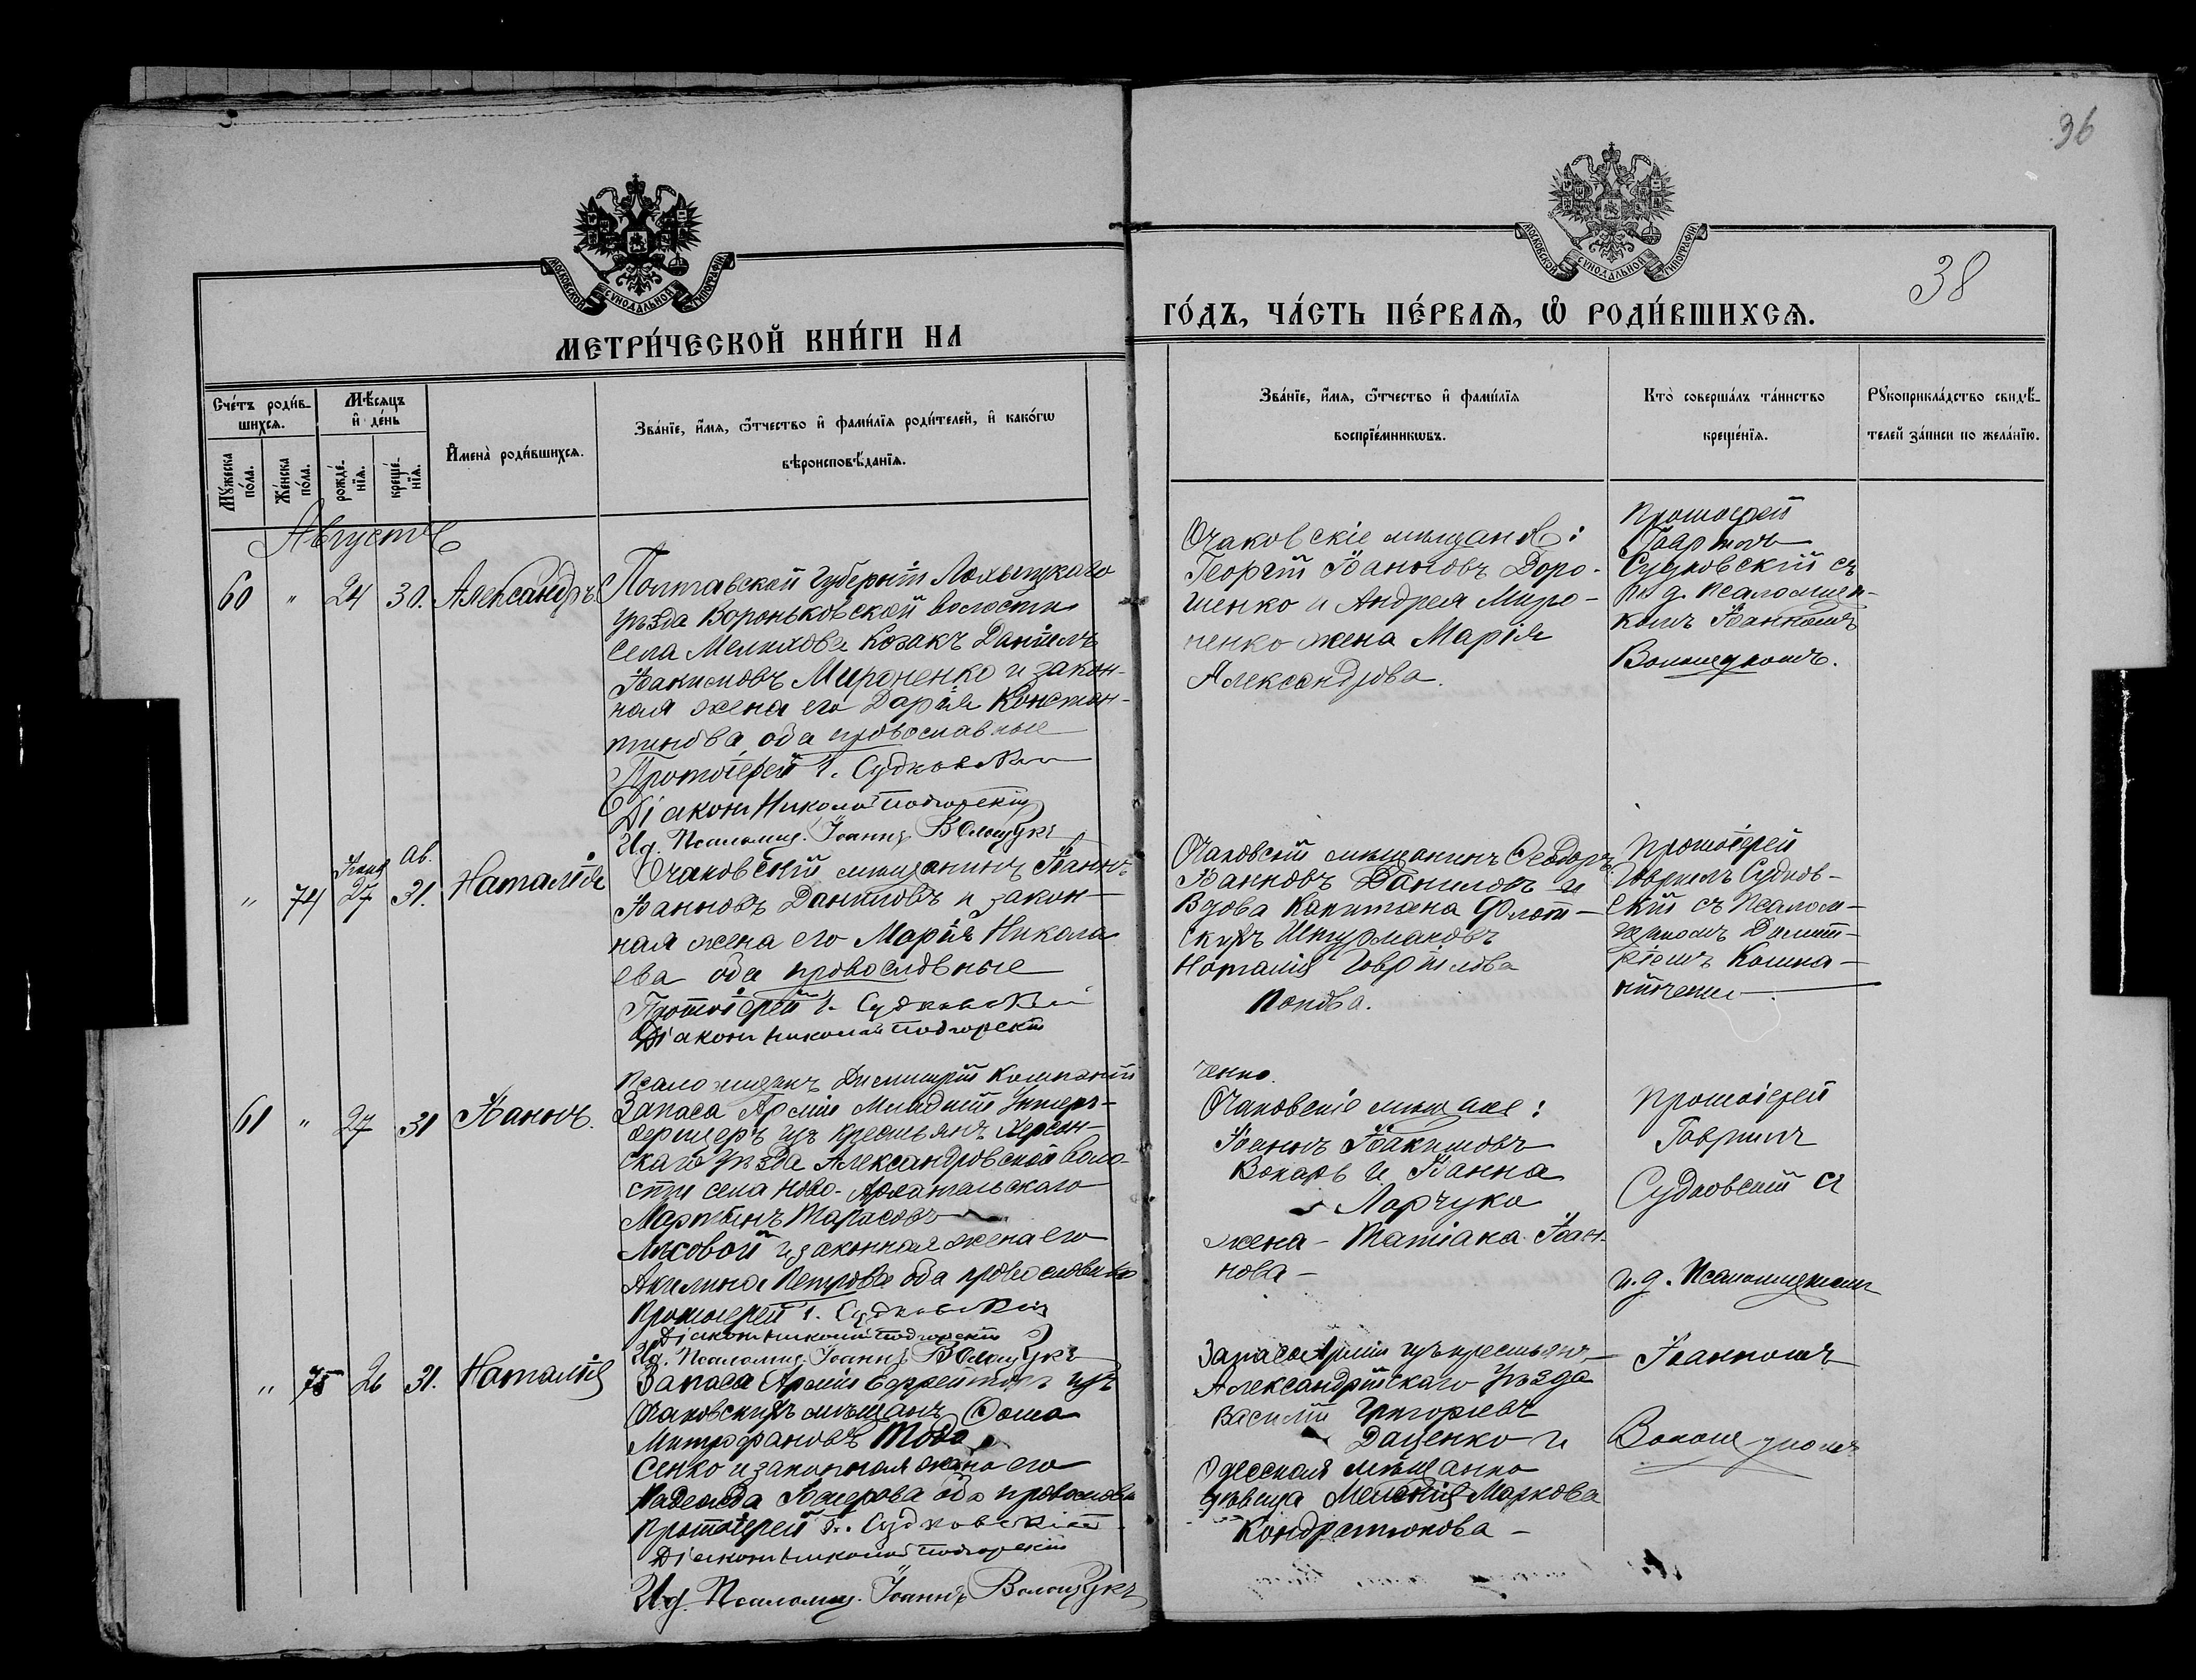 36
МОСКОВСКОЙ СѴНОДАЛЬНОЙ ТИПОГРАФІИ
МОСКОВСКОЙ СѴНОДАЛЬНОЙ ТИПОГРАФІИ
38
МЕТРИ́ЧЕСКОЙ КНИ́ГИ НА
ГО́ДЪ, ЧА́СТЬ ПЕ́РВАѦ, Ѡ҆ РОДИ́ВШИХСѦ.
Сче́тъ роди́в-
шихсѧ.
Мꙋ́жеска
по́ла.
Же́нска
по́ла.
Мѣ́сѧцъ
и҆ де́нь
рожде́-
нїѧ.
креще́-
нїѧ.
И҆мена̀ роди́вшихсѧ.
Зва́нїе, и҆́мѧ, ѻ҆́тчество и҆ фами́лїѧ роди́телей, и҆ како́гѡ
вѣроисповѣ́данїѧ.
Зва́нїе, и҆́мѧ, ѻ҆́тчество и҆ фами́лїѧ
воспрїе́мникѡвъ.
Кто̀ соверша́лъ та́инство
креще́нїѧ.
Рꙋкоприкла́дство свидѣ́-
телей за́писи по жела́нїю.
Августъ
60 " 24 30. Александръ
Полтавской губерніи Лохвицкаго
уѣзда Вороньковской волости
села Мелихова Козакъ Даніилъ
Іоакимовъ Мироненко и закон-
ная жена его Дарія Констан-
тинова, оба православные
Протоіерей Г. Судковскій
Діаконъ Николай Подгорскій
И.д. Псаломщ. Іоаннъ Волощукъ
Очаковскіе мѣщане:
Георгій Іоанновъ Доро-
шенко и Андрея Миро-
ненко жена Марія
Александрова.
Протоіерей
Гавріилъ
Судковскій съ
и. д. псаломщи-
комъ Іоанномъ
Волощукомъ.
" 74 27 Ав. 31. Наталія
Очаковскій мѣщанинъ Іоаннъ
Іоанновъ Даниловъ и закон-
ная жена его Марія Никола
ева оба православные
Протоіерей Г. Судковскій
Діаконъ Николай Подгорскій
Псаломщикъ Димитрій Компаній
ченко.
Очаковскій мѣщанинъ Ѳеодоръ
Іоанновъ Даниловъ и
Вдова Капитана Флот-
скихъ Штурмановъ
Наталія Гавріилова
Попова.
Протоіерей
Гавріилъ Судков-
скій съ псалом-
щикомъ Димит-
ріемъ Компа-
нійченко
61 " 27 31 Іоаннъ.
Запаса Арміи Младшій Унтеръ-
офицеръ изъ крестьянъ Херсон-
скаго уѣзда Александровской воло-
сти села Ново-Архангельскаго
Мартынъ Тарасовъ
Лисовой и законная жена его
Акилина Петрова оба православные
Протоіерей Г. Судковскій
Діаконъ Николай Подгорскій
И.д. Псаломщ. Іоаннъ Волощукъ
Очаковскіе мѣщане:
Іоаннъ Іоакимовъ
и Іоанна
жена - Татіана Іоан-
нова -
Протоіерей
Гавріилъ
Судковскій съ
и. д. Псаломщикомъ
Іоанномъ
Волощукомъ
" 75 26 31. Наталія
Запаса Арміи Ефрейторъ изъ
Очаковскихъ мѣщанъ Ѳома
Митрофановъ
сенко и законная жена его
Надежда оба православн
Протоіерей Г. Судковскій
Діаконъ Николай Подгорскій
И.д. Псаломщ. Іоаннъ Волощукъ
Запаса Арміи изъ крестьянъ
Александрійскаго уѣзда
Василій Григорьевъ
Даценко и
Одесская мѣщанка
дѣвица Маркова
Кондратюкова -